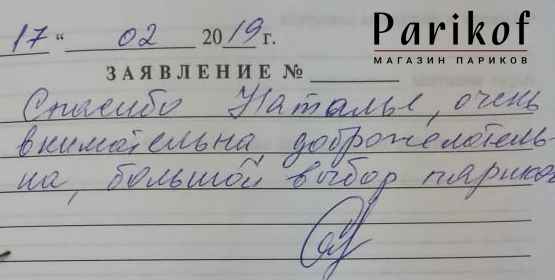 17 " 02 2019 г.
Parikof
МАГАЗИН ПАРИКОВ
ЗАЯВЛЕНИЕ №
Спасибо Наталье, очень
внимательна доброжелатель-
на, большой выбор париков